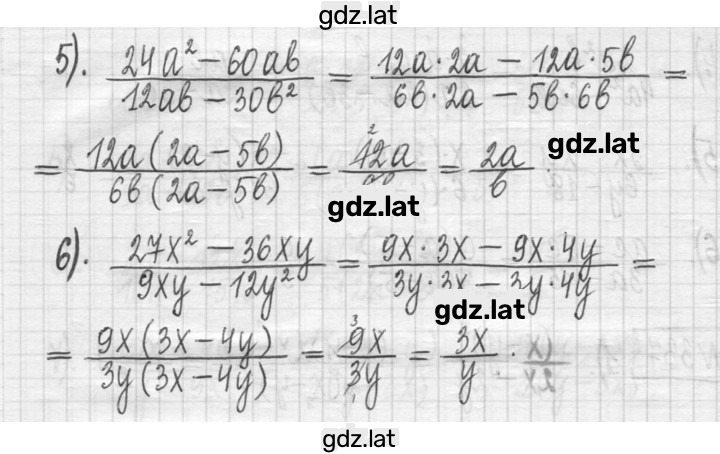 gdz.lat
5). (24a² − 60ab)/(12ab − 30b²) = (12a·2a − 12a·5b)/(6b·2a − 5b·6b) =
gdz.lat
= 12a(2a − 5b)/6b(2a − 5b) = 12a/ = 2a/b
gdz.lat
6). (27x² − 36xy)/(9xy − 12y²) = (9x·3x − 9x·4y)/(3y·3x − 3y·4y) =
gdz.lat
= 9x(3x − 4y)/3y(3x − 4y) = 9x/3y = 3x/y
gdz.lat